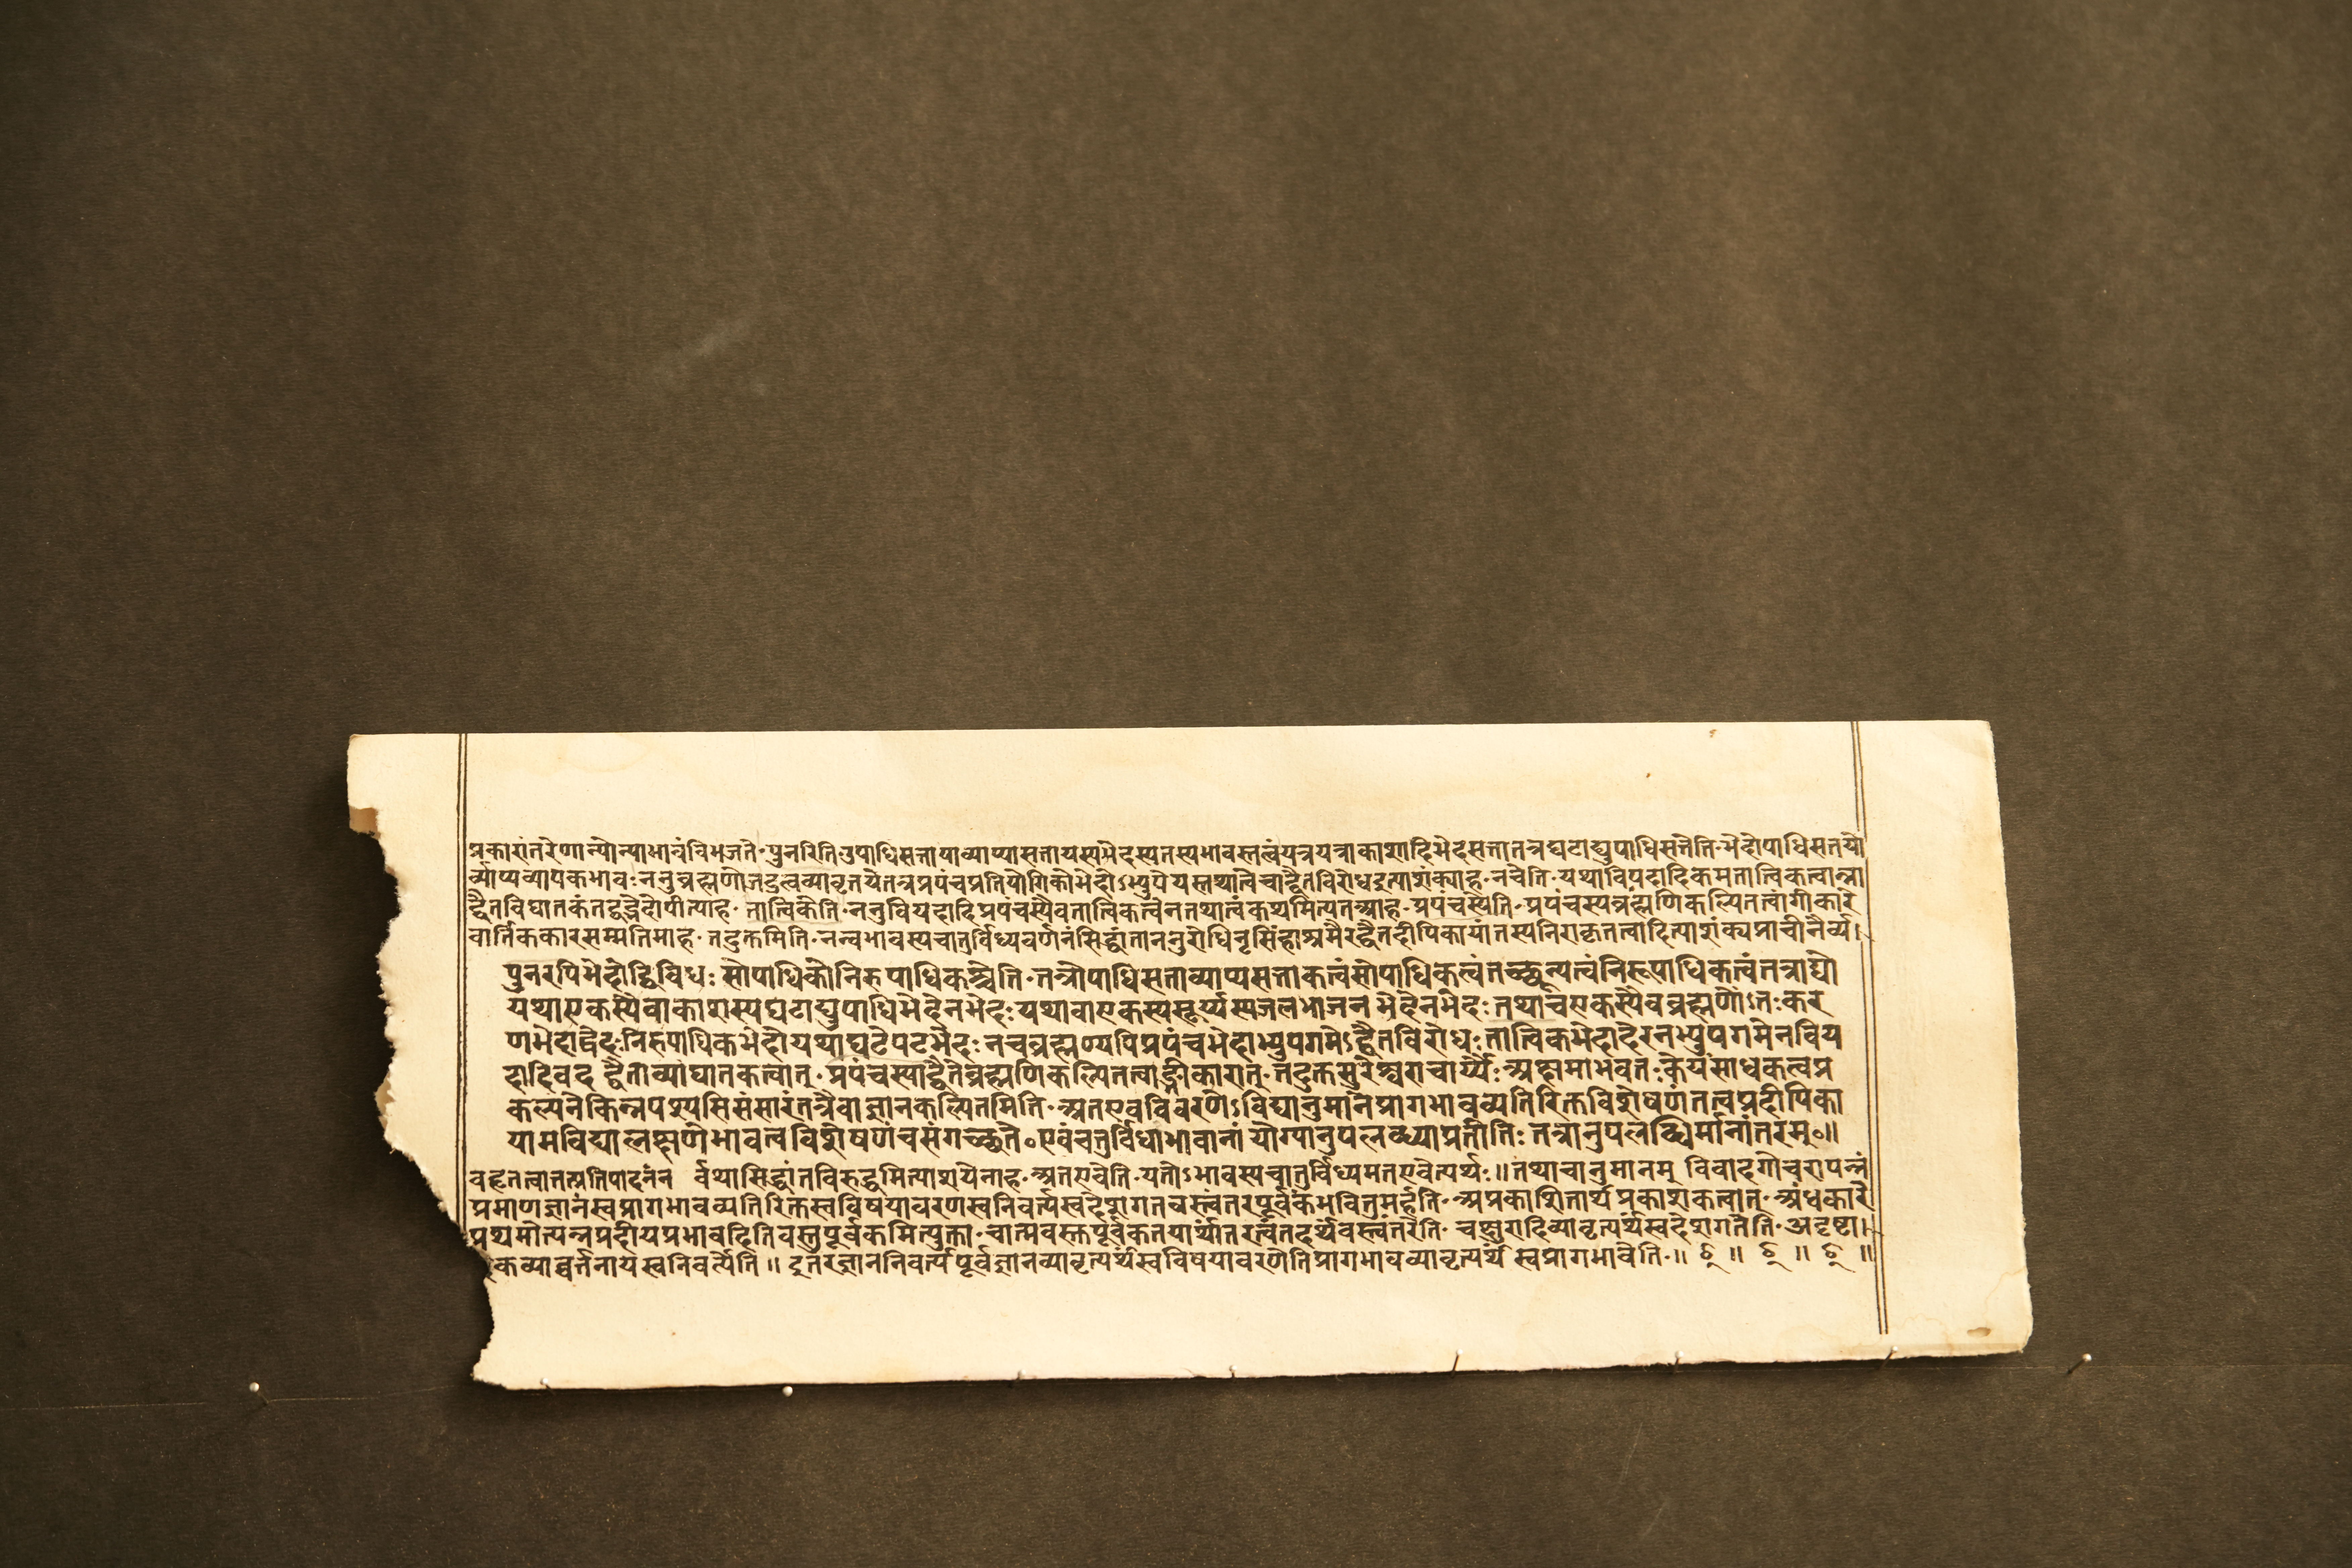 प्रकारांतरेणान्योन्याभावंविभजते॰पुनरितिउपाधिसत्ताव्याप्यासत्तायस्यभेदस्यतस्यभावस्तत्वंयत्रयत्राकाशादिभेदसत्तातत्रघटाद्युपाधिसत्तेति॰भेदोपाधिसतयो
र्व्याप्यव्यापकभावः ननुब्रह्मणोजडत्वव्यावृतयेतत्रप्रपंचप्रतियोगिकोभेदोऽभ्युपेयस्तथात्वेचाद्वैतविरोधइत्याशंक्याह॰नचेति॰यथाविपदादिकमतात्विकत्वान्ना
द्वैतविघातकंतद्वद्भेदोपीत्याह॰तात्विकेति॰ननुवियदादिप्रपंचस्यैवतात्विकत्वेनतथात्वंकथमित्यतआह॰प्रपंचस्येति॰प्रपंचस्यब्रह्मणिकल्पितत्वांगीकारे
वार्तिककारसम्मतिमाह॰तदुक्तमिति॰नन्वभावस्यचातुर्विध्यवर्णनंसिद्धांताननुरोधिनृसिंहाश्रमैरद्वैतदीपिकायांतस्यनिराकृतत्वादित्याशंक्यप्राचीनैर्व्य।
पुनरपिभेदोद्विविधः सोपाधिकोनिरुपाधिकश्चेति॰तत्रोपाधिसत्ताव्याप्यसत्ताकत्वंसोपाधिकत्वंतच्छून्यत्वंनिरूपाधिकत्वंतत्राद्यो
यथाएकस्यैवाकाशस्यघटाद्युपाधिभेदेनभेदः यथावाएकस्यसूर्य्यस्यजलभाजनभेदेनभेदः तथाचएकस्यैवब्रह्मणोंऽतःकर
णभेदाद्भेदः निरुपाधिकभेदोयथाघटेपटभेदः नचब्रह्मण्यपिप्रपंचभेदाभ्युपगमेऽद्वैतविरोधः तात्विकभेदादेरनभ्युपगमेनविय
दादिवदद्वैताव्याघातकत्वात्॰प्रपंचस्याद्वैतेब्रह्मणिकल्पितत्वाङ्गीकारात्॰तदुक्तंसुरेश्वराचार्य्यैः॰अक्षमाभवतःकेयंसाधकत्वप्र
कल्पनेकिन्नपश्यसिसंसारंतत्रैवाज्ञानकल्पितमिति॰अतएवविवरणेऽविद्यानुमानेप्रागभावव्यतिरिक्तविशेषणंतत्वप्रदीपिका
यामविद्यालक्षणेभावत्वविशेषणंचसंगच्छते॰एवंचतुर्विधाभावानांयोग्यानुपलब्ध्याप्रतीतिः तत्रानुपलब्धिर्मानांतरम्॰॥
वहृतत्वातत्प्रतिपादनंन र्वथासिद्धांतविरुद्धमित्याशयेनाह॰अतएवेति॰यतोऽभावस्यचातुर्विध्यमतएवेत्यर्थः॥तथाचानुमानम् विवादगोचरापन्नं
प्रमाणज्ञानंस्वप्रागभावव्यतिरिक्तस्वविषयावरणस्वनिवर्त्यस्वदेशगतवस्त्वंतरपूर्वकंभवितुमर्हति॰अप्रकाशितार्थप्रकाशकत्वात्॰अंधकारे
प्रथमोत्पन्नप्रदीपप्रभावदितिवस्तुपूर्वकमित्युक्ता॰चात्मवस्तपूर्वकतयार्थ्यातरत्वंतदर्थवस्त्वंतरेति॰चक्षुरादिव्यावृत्यर्थंस्वदेशगतेति॰अदृष्टा।
कव्यावर्त्तनायस्वनिवर्त्येति॥इतरज्ञाननिवर्त्यपूर्वज्ञानव्यावृत्यर्थंस्वविषयावरणेतिप्रागभावव्यावृत्यर्थं स्वप्रागभावेति॰॥